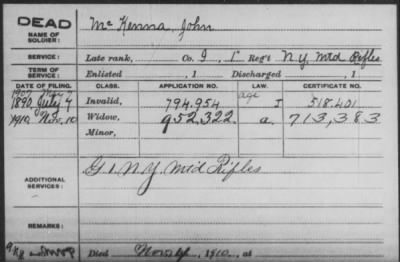 DEAD
NAME OF SOLDIER:
McKenna, John
SERVICE:
Late rank, Co. I, 1 Reg't N.Y. Mtd Rifles
TERM OF SERVICE:
Enlisted , 1 Discharged , 1
DATE OF FILING. CLASS. APPLICATION NO. LAW. CERTIFICATE NO.
1907 Mar 7 age
1890, July 7 Invalid, 794.954 I 518.401
1910, Nov. 10 Widow, 952,322 a. 713,383
Minor,
ADDITIONAL SERVICES:
G 1 N.Y. Mtd Rifles
REMARKS:
Died Nov 4, 1910, at